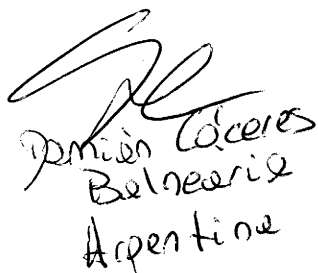 Damián Cáceres
Balnearia
Argentina